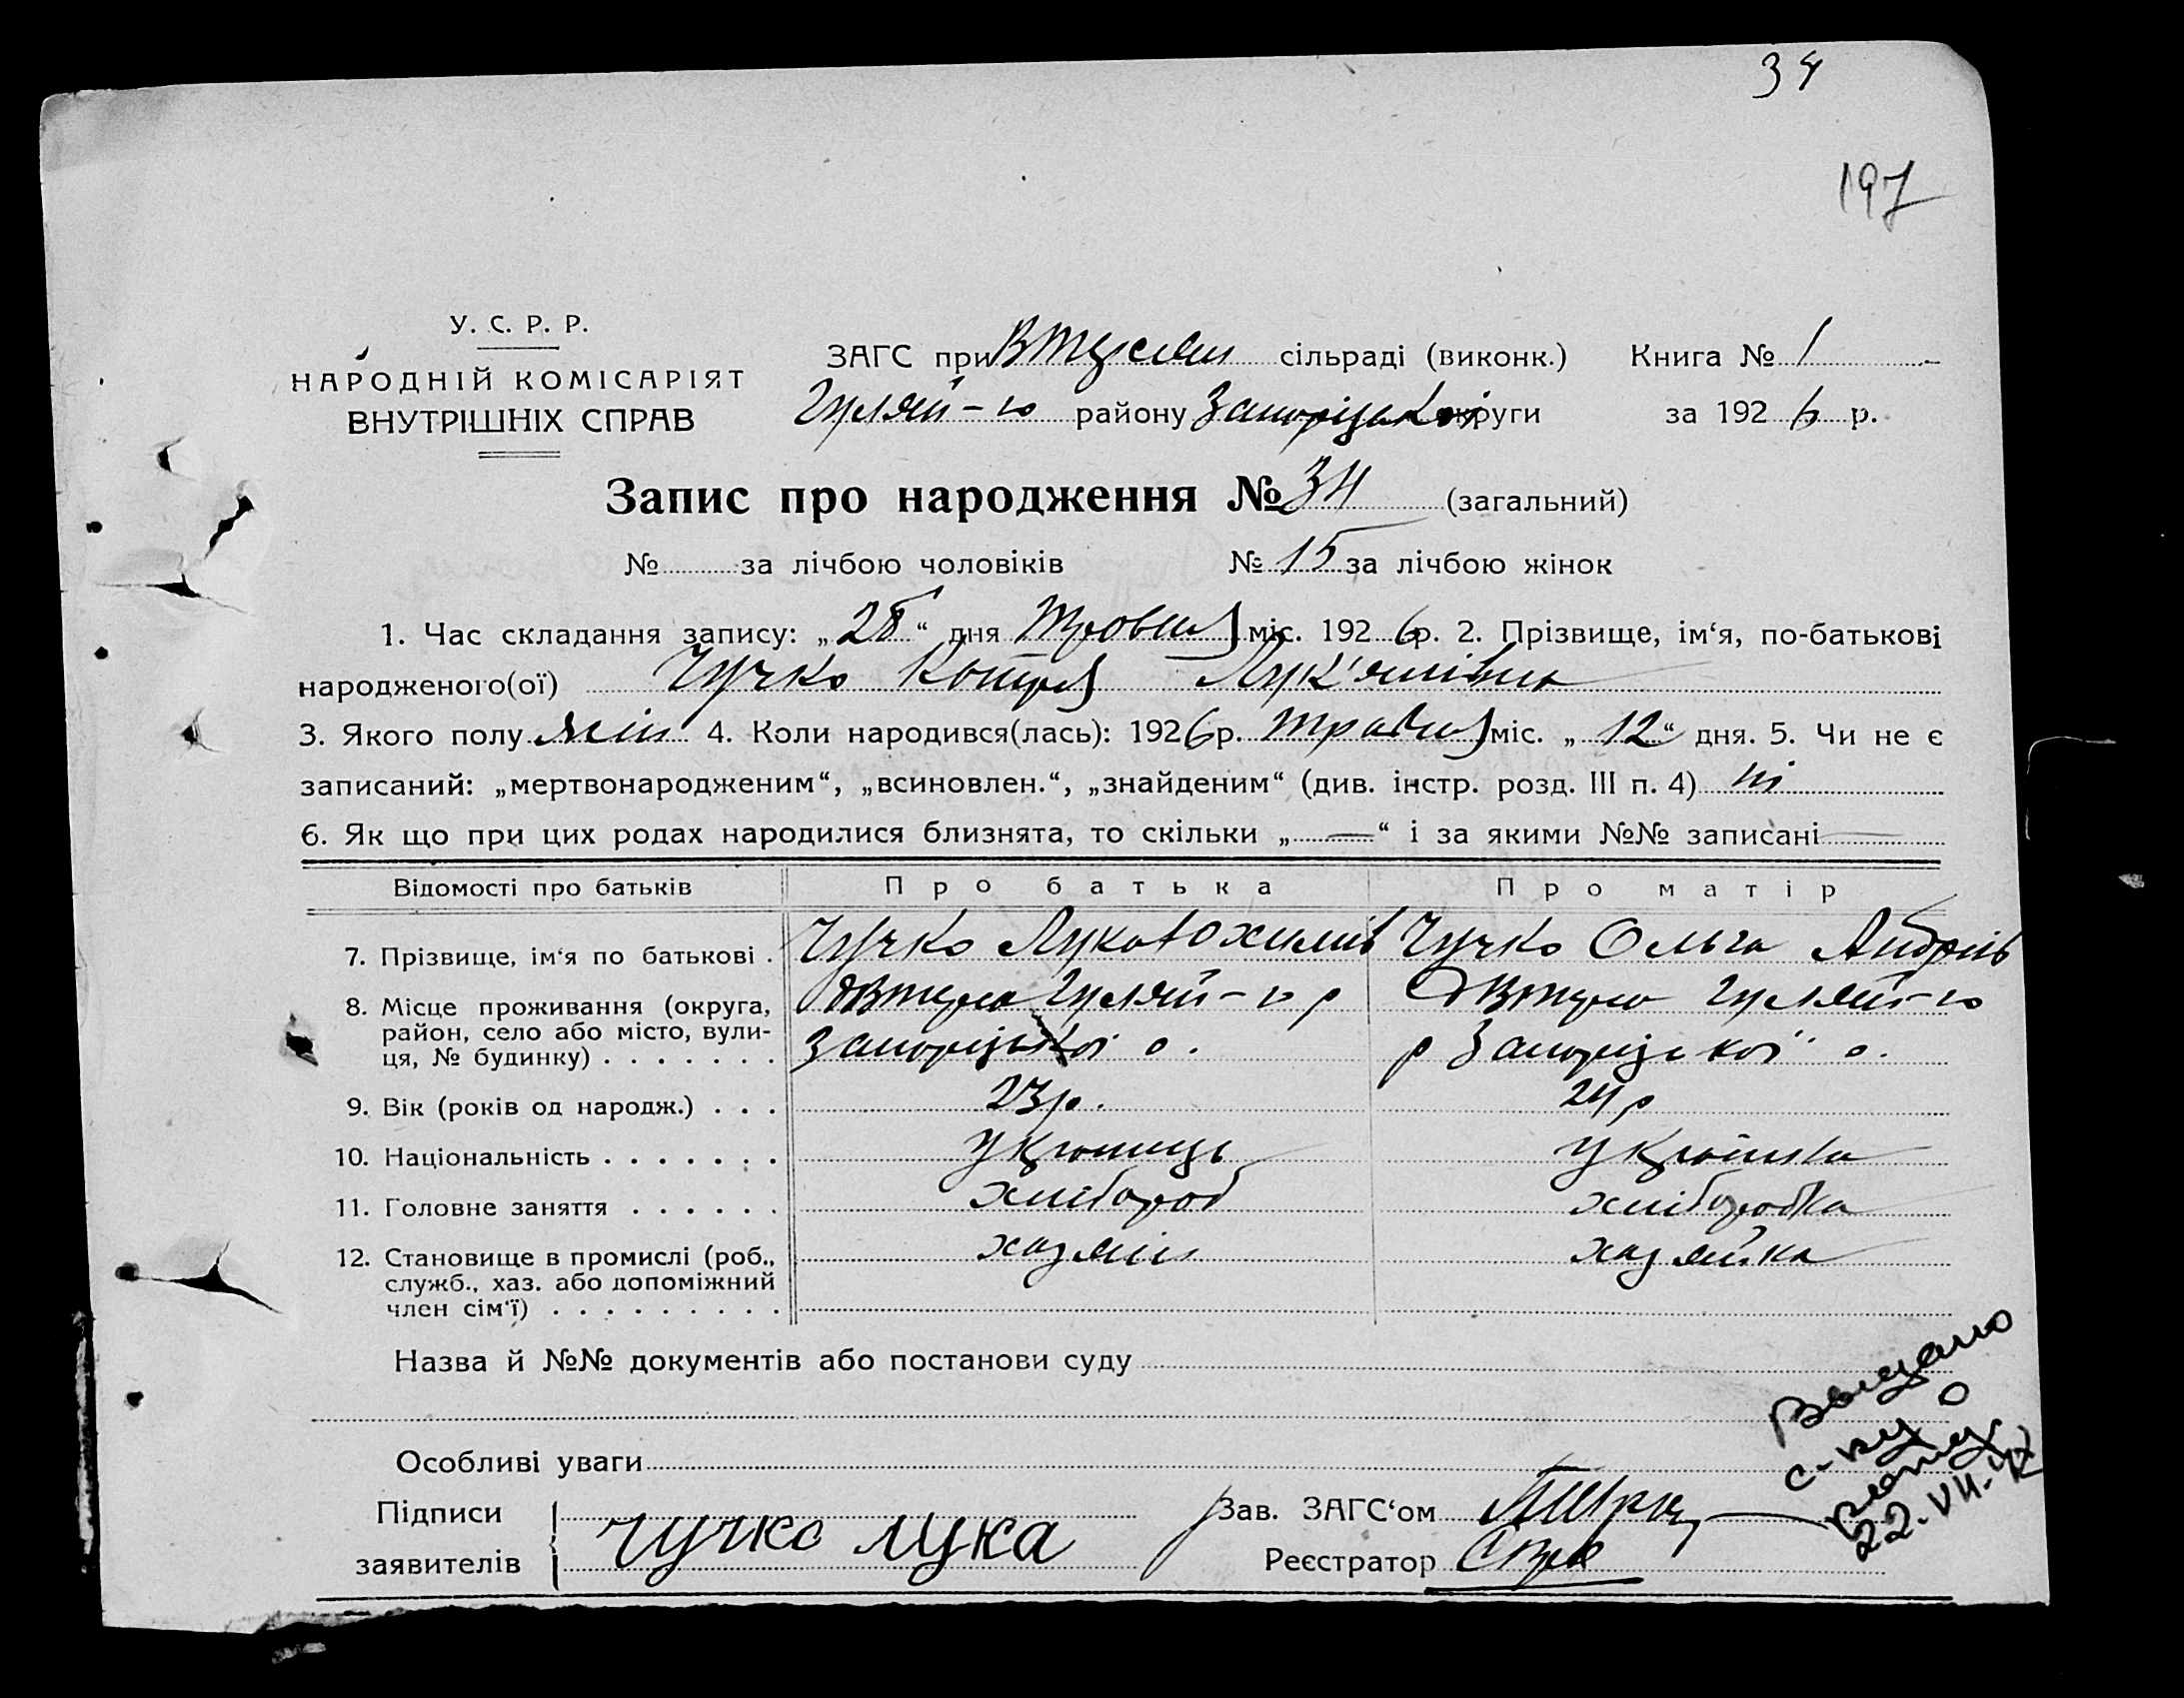 34
197
У. С. Р. Р.
НАРОДНІЙ КОМІСАРІЯТ
ВНУТРІШНІХ СПРАВ
ЗАГС при сільраді (виконк.) Книга № 1
Гуляй-го району Запоріцької округи за 1926 р.
Запис про народження № 34 (загальний)
№ за лічбою чоловіків № 15 за лічбою жінок
1. Час складання запису: „28“ дня Травня міс. 1926 р. 2. Прізвище, ім‘я, по-батькові
народженого(ої) Чучко Лук'янівна
3. Якого полу жін 4. Коли народився(лась): 1926 р. травня міс. „12“ дня. 5. Чи не є
записаний: „мертвонародженим“, „всиновлен.“, „знайденим“ (див. інстр. розд. III п. 4) ні
6. Як що при цих родах народилися близнята, то скільки „—“ і за якими №№ записані —
Відомості про батьків Про батька Про матір
7. Прізвище, ім‘я по батькові . Чучко Лука Юхимів Чучко Ольга Андріїв
8. Місце проживання (округа, Гуляй-го р Гуляй-го
район, село або місто, вули-
ця, № будинку) . . . . . . . Запоріцької о. р Запоріцької о.
9. Вік (років од народж.) . . . 23 р. 24 р
10. Національність . . . . . . . Українець Українка
11. Головне заняття . . . . . . хлібороб хліборобка
12. Становище в промислі (роб., хазяїн хазяйка
служб., хаз. або допоміжний
член сім‘ї) . . . . . . . . .
Назва й №№ документів або постанови суду
Особливі уваги
Підписи Зав. ЗАГС‘ом
заявителів Чучко Лука Реєстратор
Выдано
с-ву о
22.VII.